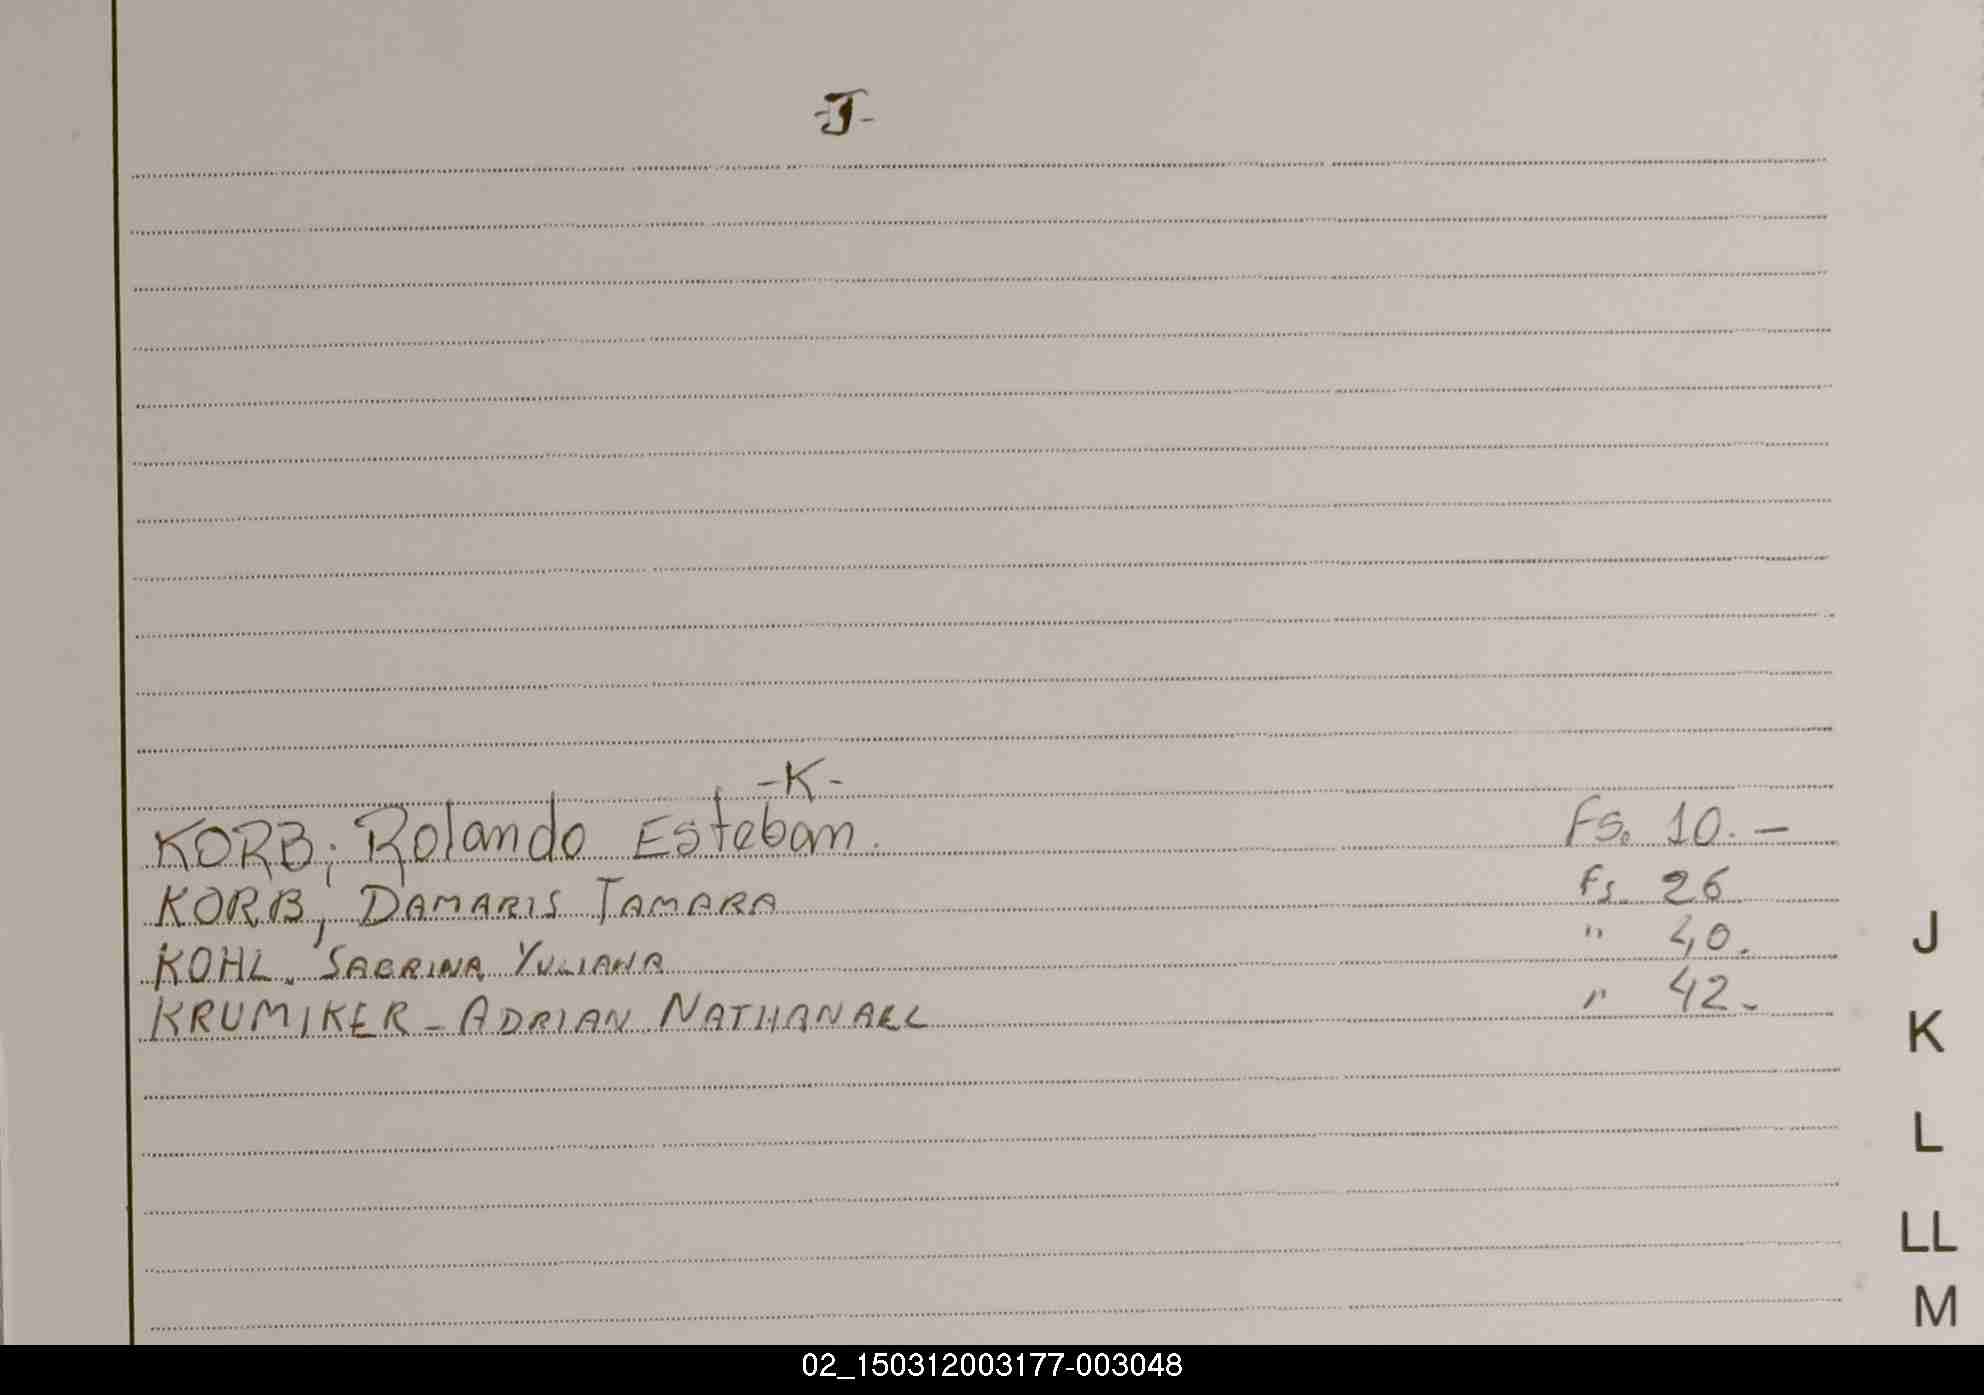 -J-
-K-
KORB, Rolando Esteban. Fs. 10.-
KORB, DAMARIS TAMARA Fs. 26
KOHL. SABRINA YULIANA " 40.
KRUMIKER - ADRIAN NATHANAEL " 42.-
J
K
L
LL
M
02_150312003177-003048